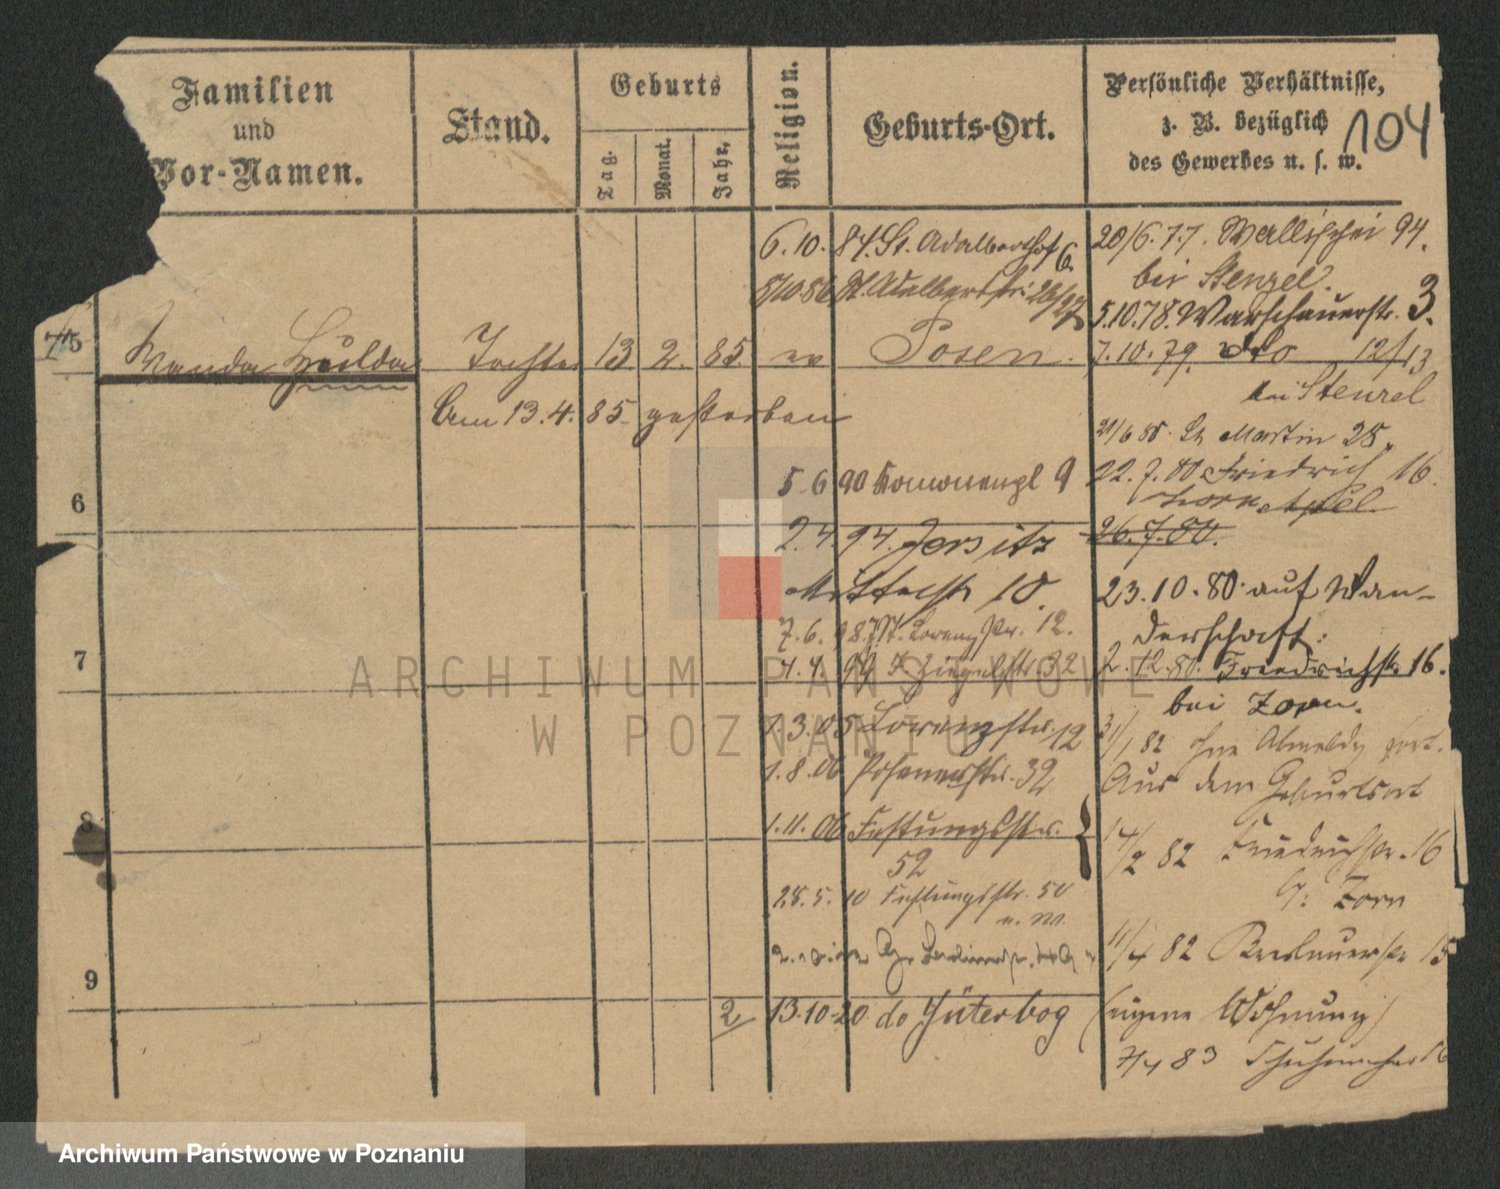 Familien
und
Vor-Namen.
Stand.
Geburts
Tag.
Monat.
Jahr.
Religion.
Geburts-Ort.
Persönliche Verhältnisse,
z. B. bezüglich
des Gewerbes u. s. w.
104
5
Wanda Hulda
Tochter 13 2. 85. ev Posen.
Am 13.4.85 gestorben
6
7
8
9
6.10.84. St. Adalbertshof 6.
8/10.86 St. Adalbertstr. 26/27
5.6.90 9
2.4.94. Jersitz
Mittelstr 18.
7.6. Lorenzstr. 12.
Ziegelstr. 32
1.3.05 Lorenzstr. 12
1.8.06 Posenerstr. 32
1.11.06 Festungsstr.
52
28.5.10 Festungsstr. 50
2 13.10.20 do Jüterbog
20/6.77. Wallischei 94.
bei Stenzel.
5.10.78. Warschauerstr. 3.
7.10.79. dto 12/13
bei Stenzel
21/6 80. St Martin 28.
22.7.80 Friedrich 16.
26.7.80.
23.10.80 auf Wan-
derschaft.
2.12.80. Friedrichstr. 16.
bei Zorn.
31/1 82 ohne Abmeldg fort.
Aus dem Geburtsort
17/2 82 Friedrichstr. 16
b: Zorn
11/4 82 Breslauerstr 15
(eigene Wohnung)
7/4 83 Schuhmacherstr 16
ARCHIWUM PAŃSTWOWE
W POZNANIU
Archiwum Państwowe w Poznaniu